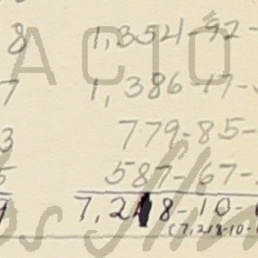 8 1,354-92-
7 1,386-17-
3 779-85-
5 587-67-
7,218-10-
(7,218-10-